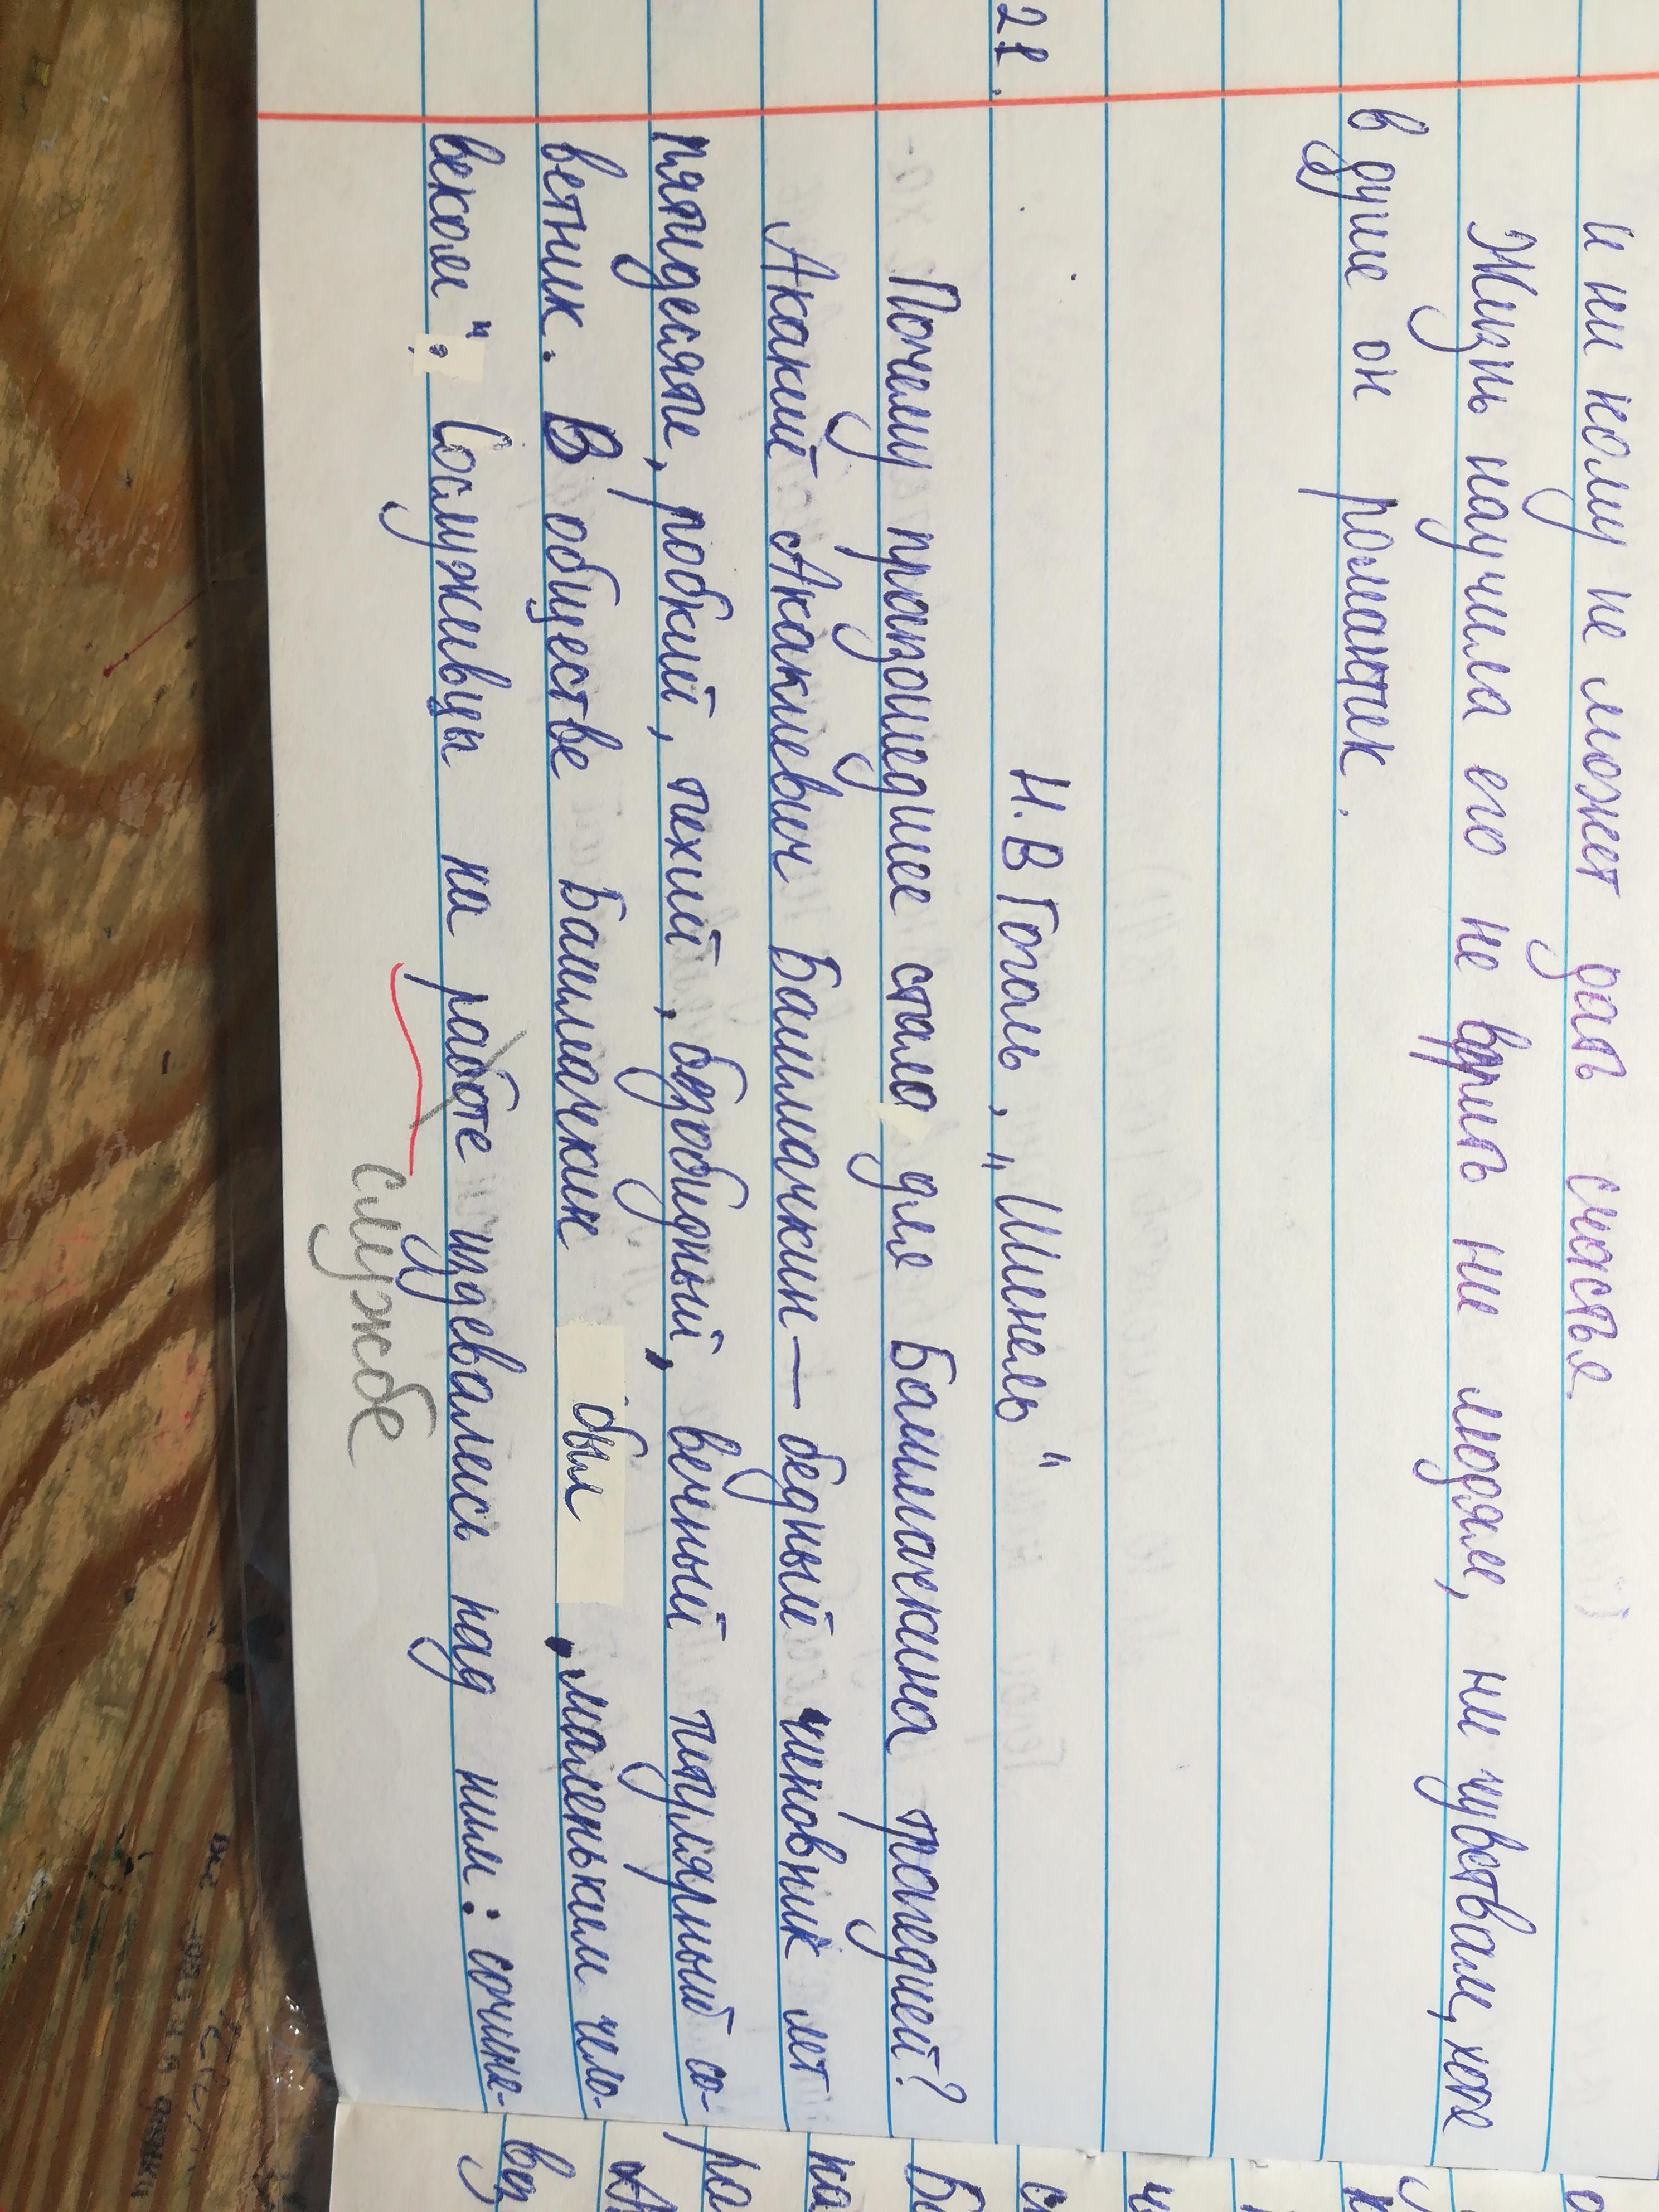 и ни кому не может дать счастья.
Жизнь научила его не врить ни людям, ни чувствам, хотя
в душе он романтик.
Н.В Гоголь, „Шинель"
21.
Почему произошедшее стало для Башмачкина трагедией?
Акакий Акакиевич Башмачкин — бедный чиновник лет
пятидесяти, робкий, тихий, безобидный, вечный титулярный со-
ветник. В обществе Башмачкин был „маленьким чело-
веком". Сослуживцы на работе издевались над ним: сочине-
службе